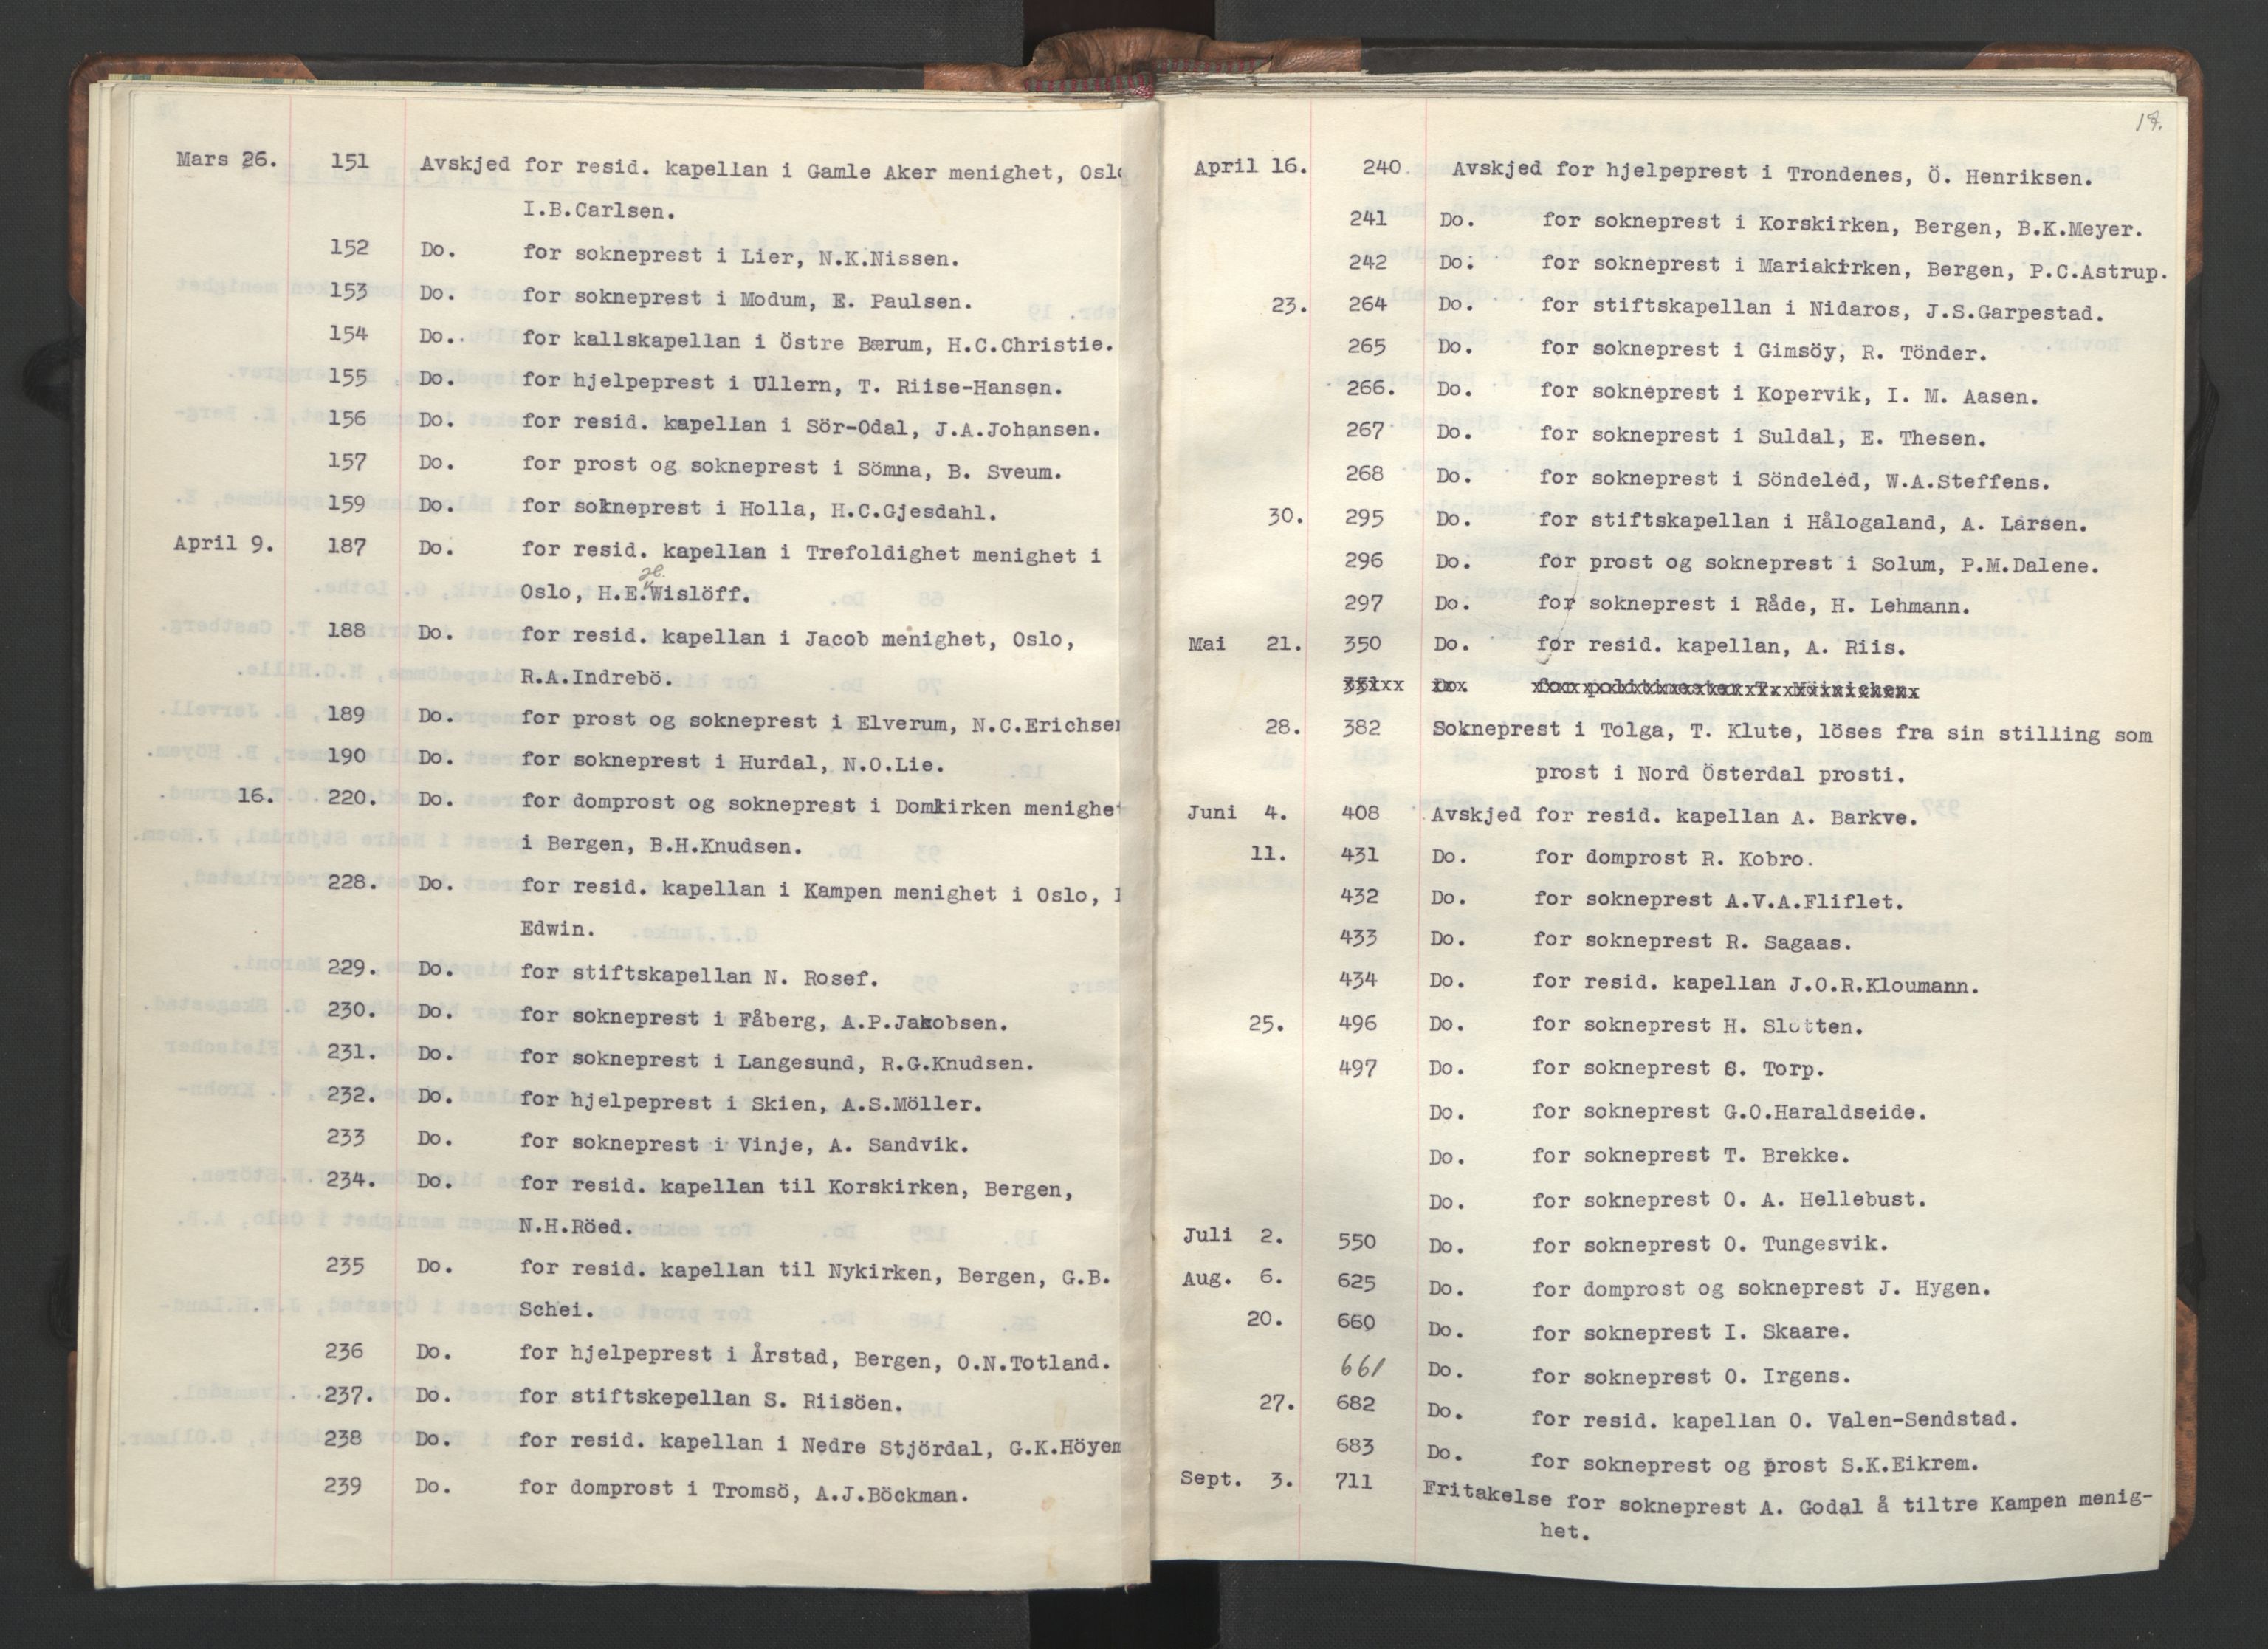 Mars 26. 151 Avskjed for resid. kapellan i Gamle Aker menighet, Oslo
I.B.Carlsen.
152 Do. for sokneprest i Lier, N.K.Nissen.
153 Do. for sokneprest i Modum, E. Paulsen.
154 Do. for kallskapellan i Östre Bærum, H.C.Christie.
155 Do. for hjelpeprest i Ullern, T. Riise-Hansen.
156 Do. for resid. kapellan i Sör-Odal, J.A.Johansen.
157 Do. for prost og sokneprest i Sömna, B. Sveum.
159 Do. for sokneprest i Holla, H.C.Gjesdahl.
April 9. 187 Do. for resid. kapellan i Trefoldighet menighet i
Oslo, H.E.Wislöff.
188 Do. for resid. kapellan i Jacob menighet, Oslo,
R.A.Indrebö.
189 Do. for prost og sokneprest i Elverum, N.C.Erichsen
190 Do. for sokneprest i Hurdal, N.O.Lie.
16. 220. Do. for domprost og sokneprest i Domkirken menighet
i Bergen, B.H.Knudsen.
228. Do. for resid. kapellan i Kampen menighet i Oslo,
Edwin.
229. Do. for stiftskapellan N. Rosef.
230. Do. for sokneprest i Fåberg, A.P.Jakobsen.
231. Do. for sokneprest i Langesund, R.G.Knudsen.
232. Do. for hjelpeprest i Skien, A.S.Möller.
233 Do. for sokneprest i Vinje, A. Sandvik.
234. Do. for resid. kapellan til Korskirken, Bergen,
N.H.Röed.
235 Do. for resid. kapellan til Nykirken, Bergen, G.B.
Schei.
236 Do. for hjelpeprest i Årstad, Bergen, O.N.Totland.
237. Do. for stiftskepellan S. Riisöen.
238 Do. for resid. kapellan i Nedre Stjördal, G.K.Höyem
239 Do. for domprost i Tromsö, A.J.Böckman.
April 16. 240. Avskjed for hjelpeprest i Trondenes, Ö. Henriksen.
241 Do. for sokneprest i Korskirken, Bergen, B.K.Meyer.
242 Do. for sokneprest i Mariakirken, Bergen, P.C.Astrup.
23. 264 Do. for stiftskapellan i Nidaros, J.S.Garpestad.
265 Do. for sokneprest i Gimsöy, R. Tönder.
266. Do. for sokneprest i Kopervik, I. M. Aasen.
267 Do. for sokneprest i Suldal, E. Thesen.
268 Do. for sokneprest i Söndeled, W.A.Steffens.
30. 295 Do. for stiftskapellan i Hålogaland, A. Larsen.
296 Do. for prost og sokneprest i Solum, P.M.Dalene.
297 Do. for sokneprest i Råde, H. Lehmann.
Mai 21. 350 Do. for resid. kapellan, A. Riis.
28. 382 Sokneprest i Tolga, T. Klute, löses fra sin stilling som
prost i Nord Österdal prosti.
Juni 4. 408 Avskjed for resid. kapellan A. Barkve.
11. 431 Do. for domprost R. Kobro.
432 Do. for sokneprest A.V.A.Fliflet.
433 Do. for sokneprest R. Sagaas.
434 Do. for resid. kapellan J.O.R.Kloumann.
25. 496 Do. for sokneprest H. Slotten.
497 Do. for sokneprest S. Torp.
Do. for sokneprest G.O.Haraldseide.
Do. for sokneprest T. Brekke.
Do. for sokneprest O. A. Hellebust.
Juli 2. 550 Do. for sokneprest O. Tungesvik.
Aug. 6. 625 Do. for domprost og sokneprest J. Hygen.
20. 660 Do. for sokneprest I. Skaare.
661 Do. for sokneprest O. Irgens.
27. 682 Do. for resid. kapellan O. Valen-Sendstad.
683 Do. for sokneprest og prost S.K.Eikrem.
Sept. 3. 711 Fritakelse for sokneprest A. Godal å tiltre Kampen menig-
het.